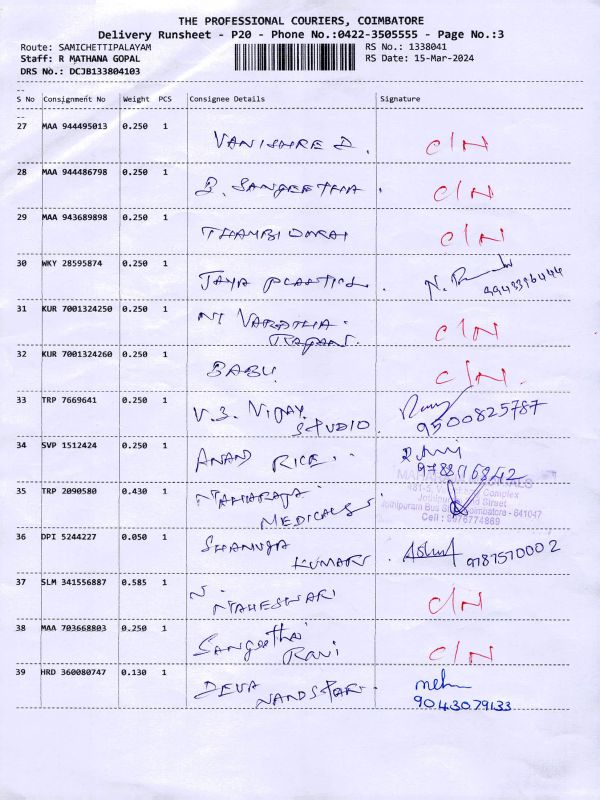 THE PROFESSIONAL COURIERS, COIMBATORE
Delivery Runsheet - P20 - Phone No.:0422-3505555 - Page No.:3
Route: SAMICHETTIPALAYAM RS No.: 1338041
Staff: R MATHANA GOPAL RS Date: 15-Mar-2024
DRS No.: DCJB133804103
S No Consignment No Weight PCS Consignee Details Signature
27 MAA 944495013 0.250 1 VANISHREE D. C/N
28 MAA 944486798 0.250 1 B. SANGEETHA. C/N
29 MAA 943689898 0.250 1 THAMBI DURAI C/N
30 WKY 28595874 0.250 1 JAYA PLASTICS. N.
31 KUR 7001324250 0.250 1 C/N
32 KUR 7001324260 0.250 1 BABU. C/N.
33 TRP 7669641 0.250 1 V.S. VIJAY
STUDIO. 9500825787
34 SVP 1512424 0.250 1 ANAND RICE.
35 TRP 2090580 0.430 1 MAHARAJA
MEDICALS Complex
Street
Coimbatore - 641047
Cell :
36 DPI 5244227 0.050 1 SHANMUGA
KUMAR. 9787570002
37 SLM 341556887 0.585 1 N.
MAHESWARI C/N
38 MAA 703668803 0.250 1 Sangeetha
Rani C/N
39 HRD 360080747 0.130 1 DEVA
9043079133